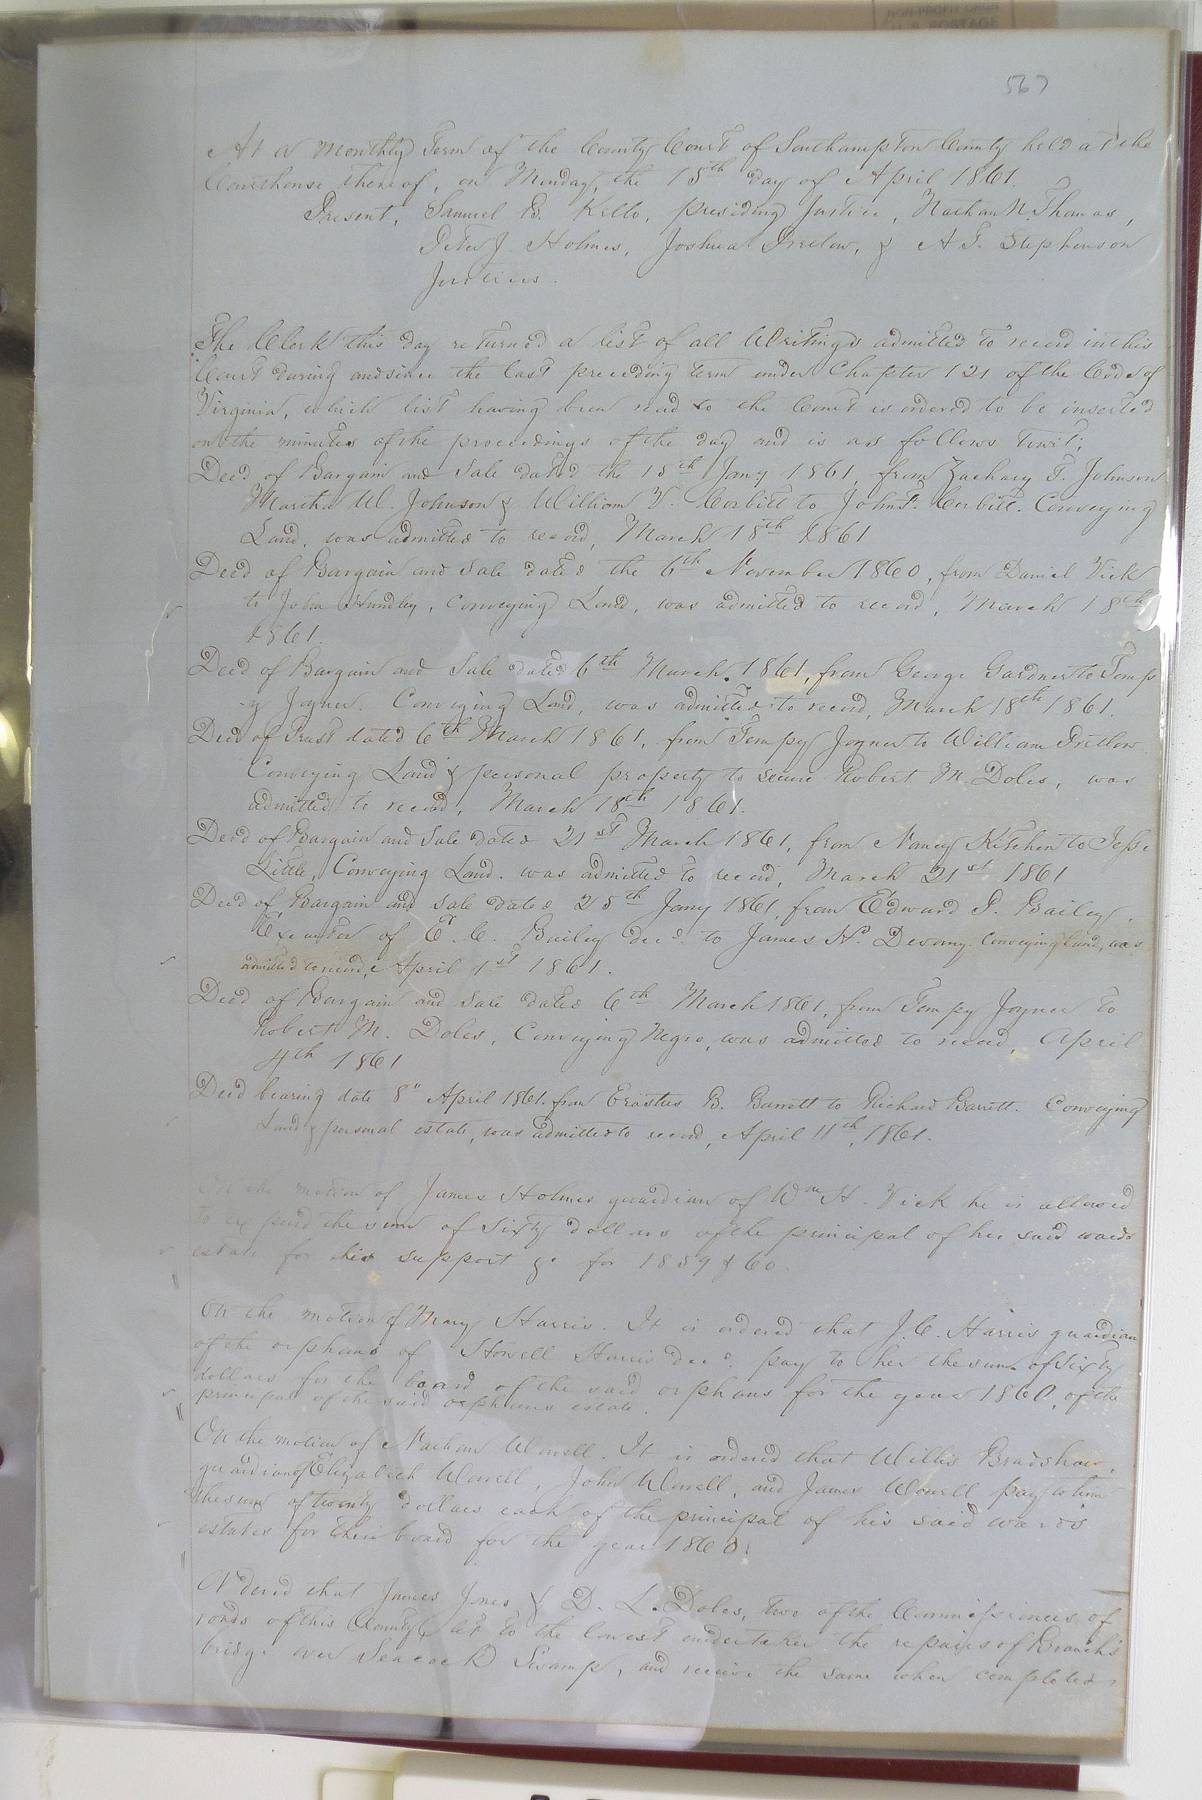 NON-PROFIT ORGN
U.S. POSTAGE
567
At a Monthly Term of the County Court of Southampton County held at the
Courthouse thereof, on Monday, the 15th day of April 1861.
Present, Samuel B. Kello, presiding Justice, Nathan N. Thomas,
Peter J. Holmes, Joshua Pretlow, & A. T. Stephenson
Justices.
The Clerk this day returned a list of all Writings admitted to record in this
Court during and since the last preceding term under Chapter 121 of the Code of
Virginia, which list having been read to the Court is ordered to be inserted
on the minutes of the proceedings of the day and is as follows towit;
Deed of Bargain and Sale dated the 15th Jany 1861, from Zachary T. Johnson
Martha W. Johnson & William V. Corbitt to John F. Corbitt. Conveying
Land, was admitted to record, March 18th 1861
Deed of Bargain and Sale dated the 6th November 1860, from Daniel Vick
to John Hundley, Conveying Land, was admitted to record, March 18th
1861.
Deed of Bargain and Sale dated 6th March 1861, from George Gardner to Temp
-y Joyner. Conveying Land, was admitted to record, March 18th 1861.
Deed of Trust dated 6th March 1861, from Tempy Joyner to William Pretlow
Conveying Land & personal property to secure Robert M. Doles, was
admitted to record, March 18th 1861.
Deed of Bargain and Sale dated 21st March 1861, from Nancy Kitchen to Jesse
Little, Conveying Land. was admitted to record, March 21st 1861
Deed of Bargain and Sale dated 25th Jany 1861, from Edward P. Bailey,
Executor of E. C. Bailey decd. to James H. Devany. Conveying Land, was
admitted to record, April 1st 1861.
Deed of Bargain and Sale dated 6th March 1861, from Tempy Joyner to
Robert M. Doles, Conveying Negro, was admitted to record, April
4th 1861
Deed bearing date 8" April 1861. from Erastus B. Barrett to Richard Barrett. Conveying
Land & personal estate, was admitted to record, April 11th, 1861.
On the motion of James Holmes guardian of Wm H. Vick he is allowed
to expend the sum of Sixty dollars of the principal of his said wards
estate for his support &c for 1859 & 60.
On the motion of Mary Harris. It is ordered that J. C. Harris guardian
of the orphans of Howell Harris decd. pay to her the sum of Sixty
dollars for the board of the said orphans for the year 1860, of the
principal of the said orphans estate.
On the motion of Nathan Worrell. It is ordered that Willis Bradshaw,
guardian of Elizabeth Worrell, John Worrell, and James Worrell pay to him
the sum of twenty dollars each of the principal of his said wards
estates for their board for the year 1860.
Ordered that James Jones & D. L. Doles, two of the Commissioners of
roads of this County, let to the lowest undertaker the repairs of Branch's
bridge over Seacock Swamp, and receive the same when completed.